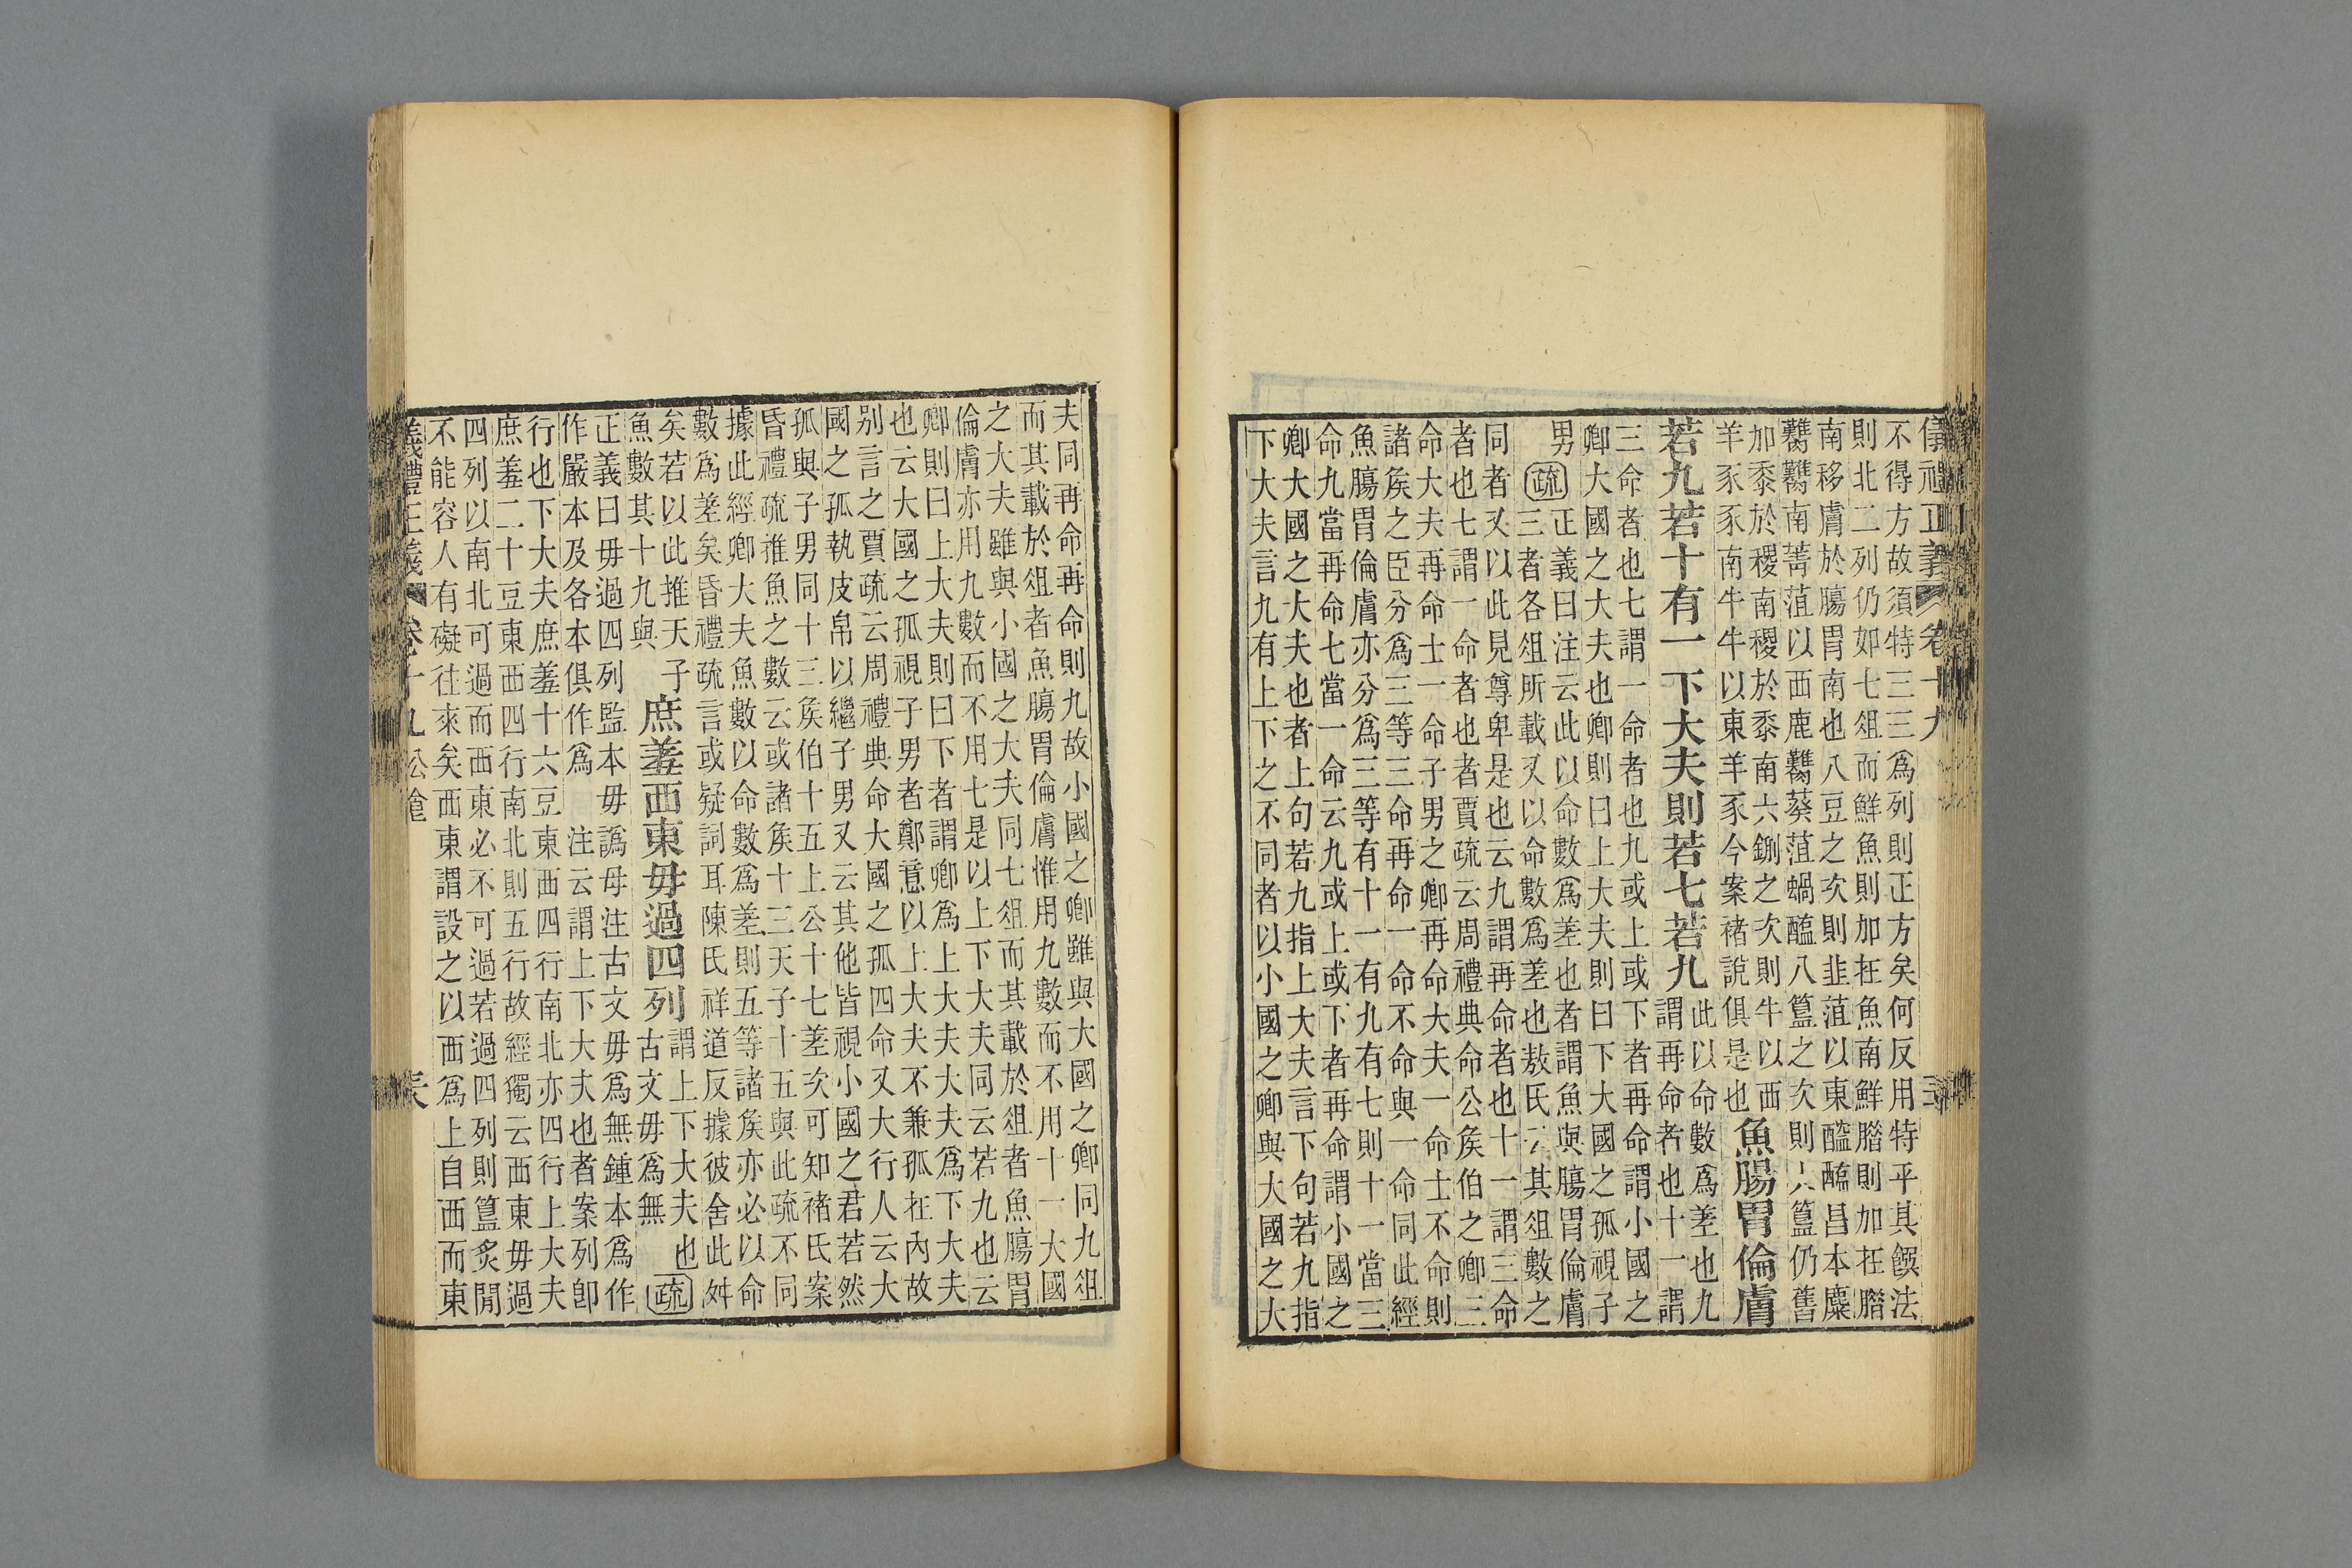 儀禮正義 卷十九
不得方故須特三三爲列則正方矣何反用特乎其饌法
則北二列仍如七俎而鮮魚則加在魚南鮮腊則加在腊
南移膚於腸胃南也八豆之次則韭菹以東醓醢昌本麋
臡臡南菁菹以西鹿臡葵菹蝸醢八簋之次則六簋仍舊
加黍於稷南稷於黍南六鉶之次則牛以西
羊豕豕南牛牛以東羊豕今案褚說俱是也
魚腸胃倫膚
若九若十有一下大夫則若七若九
此以命數爲差也九
謂再命者也十一謂
三命者也七謂一命者也九或上或下者再命謂小國之
卿大國之大夫也卿則曰上大夫則曰下大國之孤視子
男
疏
正義曰注云此以命數爲差也者謂魚與腸胃倫膚
三者各俎所載又以命數爲差也敖氏云其俎數之
同者又以此見尊卑是也云九謂再命者也十一謂三命
者也七謂一命者也者賈疏云周禮典命公矦伯之卿三
命大夫再命士一命子男之卿再命大夫一命士不命則
諸矦之臣分爲三等三命再命一命不命與一命同此經
魚腸胃倫膚亦分爲三等有十一有九有七則十一當三
命九當再命七當一命云九或上或下者再命謂小國之
卿大國之大夫也者上句若九指上大夫言下句若九指
下大夫言九有上下之不同者以小國之卿與大國之大
夫同再命再命則九故小國之卿雖與大國之卿同九俎
而其載於俎者魚腸胃倫膚惟用九數而不用十一大國
之大夫雖與小國之大夫同七俎而其載於俎者魚腸胃
倫膚亦用九數而不用七是以上下大夫同云若九也云
卿則曰上大夫則曰下者謂卿爲上大夫大夫爲下大夫
也云大國之孤視子男者鄭意以上大夫不兼孤在內故
別言之賈疏云周禮典命大國之孤四命又大行人云大
國之孤執皮帛以繼子男又云其他皆視小國之君若然
孤與子男同十三矦伯十五上公十七差次可知褚氏案
昏禮疏推魚之數云或諸矦十三天子十五與此疏不同
據此經卿大夫魚數以命數爲差則五等諸矦亦必以命
數爲差矣昏禮疏言或疑詞耳陳氏祥道反據彼舍此舛
矣若以此推天子
魚數其十九與
庶羞西東毋過四列
謂上下大夫也
古文毋爲無
疏
正義曰毋過四列監本毋譌母注古文毋爲無鍾本爲作
作嚴本及各本俱作爲 注云謂上下大夫也者案列卽
行也下大夫庶羞十六豆東西四行南北亦四行上大夫
庶羞二十豆東西四行南北則五行故經獨云西東毋過
四列以南北可過而西東必不可過若過四列則簋炙閒
不能容人有礙往來矣西東謂設之以西爲上自西而東